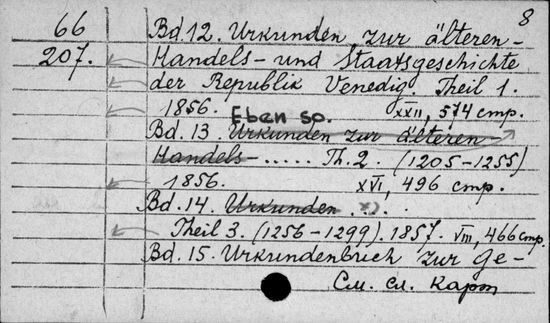 8
66 Bd. 12. Urkunden zur älteren
207. Handels- und Staatsgeschichte
der Republik Venedig. Theil 1.
1856. XXII, 574 стр.
Eben so.
Bd. 13. Urkunden zur älteren
Handels- ..... Th. 2. (1205-1255)
1856. XVI, 496 стр.
Bd. 14. Urkunden . *) .
Theil 3. (1256-1299). 1857. VIII, 466 стр.
Bd. 15. Urkundenbuch zur Ge-
См. сл. карт